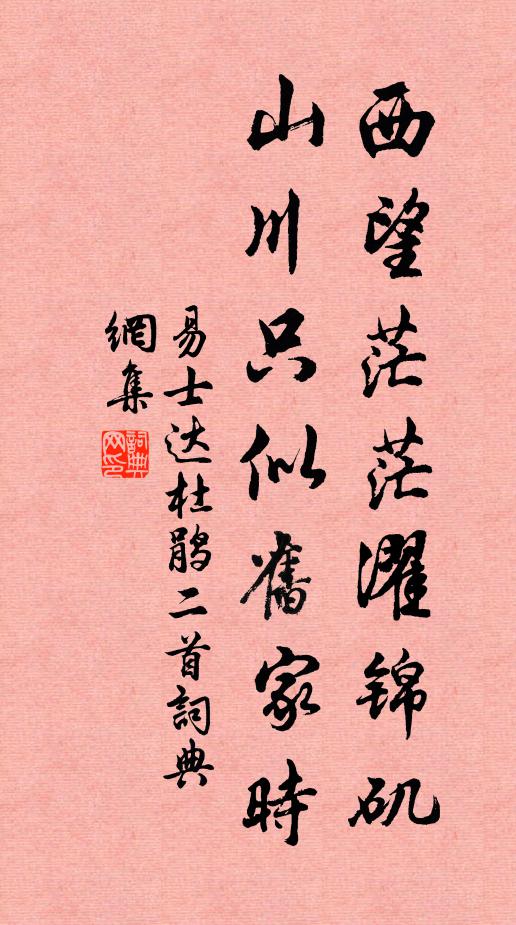 西望茫茫濯锦矶
山川只似舊家時
易士达杜鹃二首詞典
網集
詞典网印